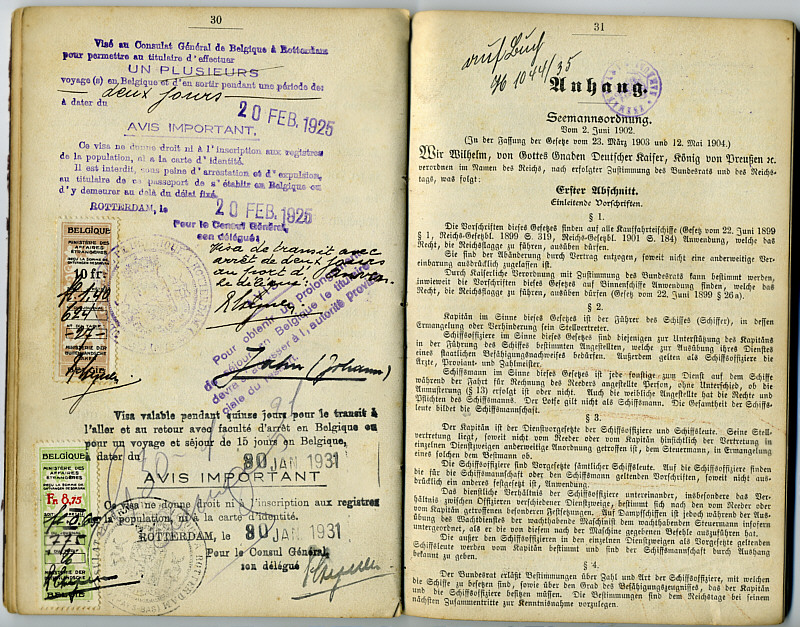 30
Visé au Consulat Général de Belgique à Rotterdam
pour permettre au titulaire d'effectuer
UN PLUSIEURS
voyage(s) en Belgique et d'en sortir pendant une période de:
deux jours
à dater du 20 FEB. 1925
AVIS IMPORTANT.
Ce visa ne donne droit ni à l'inscription aux registres
de la population, ni à la carte d'identité.
Il est interdit, sous peine d'arrestation et d'expulsion,
au titulaire de ce passeport de s'établir en Belgique ou
d'y demeurer au delà du délai fixé.
ROTTERDAM, le 20 FEB. 1925
Pour le Consul Général,
son délégué:
Visa de transit avec
arrêt de deux jours
au port d'Anvers
le délégué:
Pour obtenir une prolongation
de séjour en Belgique le titulaire
devra s'adresser à l'autorité provin-
ciale du
Jahn (Johann)
BELGIQUE
MINISTÈRE DES
AFFAIRES
ÉTRANGÈRES
10 fr
fl. 1,40
624
-27-
MINISTERIE DER
BUITENLANDSCHE
ZAKEN
BELGIË
Visa valable pendant quinze jours pour le transit à
l'aller et au retour avec faculté d'arrêt en Belgique ou
pour un voyage et séjour de 15 jours en Belgique,
à dater du 30 JAN 1931
AVIS IMPORTANT
Ce visa ne donne droit ni à l'inscription aux registres
de la population, ni à la carte d'identité.
ROTTERDAM, le 30 JAN 1931
Pour le Consul Général,
son délégué
BELGIQUE
MINISTÈRE DES
AFFAIRES
ÉTRANGÈRES
Fr. 8,75
MINISTERIE DER
BUITENLANDSCHE
ZAKEN
BELGIË
31
auf Buch
No 1044/35
Anhang.
Seemannsordnung.
Vom 2. Juni 1902.
(In der Fassung der Gesetze vom 23. März 1903 und 12. Mai 1904.)
Wir Wilhelm, von Gottes Gnaden Deutscher Kaiser, König von Preußen ꝛc.
verordnen im Namen des Reichs, nach erfolgter Zustimmung des Bundesrats und des Reichs-
tags, was folgt:
Erster Abschnitt.
Einleitende Vorschriften.
§ 1.
Die Vorschriften dieses Gesetzes finden auf alle Kauffahrteischiffe (Gesetz vom 22. Juni 1899
§ 1, Reichs-Gesetzbl. 1899 S. 319, Reichs-Gesetzbl. 1901 S. 184) Anwendung, welche das
Recht, die Reichsflagge zu führen, ausüben dürfen.
Sie sind der Abänderung durch Vertrag entzogen, soweit nicht eine anderweitige Ver-
einbarung ausdrücklich zugelassen ist.
Durch Kaiserliche Verordnung mit Zustimmung des Bundesrats kann bestimmt werden,
inwieweit die Vorschriften dieses Gesetzes auf Binnenschiffe Anwendung finden, welche das
Recht, die Reichsflagge zu führen, ausüben dürfen (Gesetz vom 22. Juni 1899 § 26a).
§ 2.
Kapitän im Sinne dieses Gesetzes ist der Führer des Schiffes (Schiffer), in dessen
Ermangelung oder Verhinderung sein Stellvertreter.
Schiffsoffiziere im Sinne dieses Gesetzes sind diejenigen zur Unterstützung des Kapitäns
in der Führung des Schiffes bestimmten Angestellten, welche zur Ausübung ihres Dienstes
eines staatlichen Befähigungsnachweises bedürfen. Außerdem gelten als Schiffsoffiziere die
Ärzte, Proviant- und Zahlmeister.
Schiffsmann im Sinne dieses Gesetzes ist jede sonstige zum Dienst auf dem Schiffe
während der Fahrt für Rechnung des Reeders angestellte Person, ohne Unterschied, ob die
Anmusterung (§ 13) erfolgt ist oder nicht. Auch die weibliche Angestellte hat die Rechte und
Pflichten des Schiffsmanns. Der Lotse gilt nicht als Schiffsmann. Die Gesamtheit der Schiffs-
leute bildet die Schiffsmannschaft.
§ 3.
Der Kapitän ist der Dienstvorgesetzte der Schiffsoffiziere und Schiffsleute. Seine Stell-
vertretung liegt, soweit nicht vom Reeder oder vom Kapitän hinsichtlich der Vertretung in
einzelnen Dienstzweigen anderweitige Anordnung getroffen ist, dem Steuermann, in Ermangelung
eines solchen dem Bestmann ob.
Die Schiffsoffiziere sind Vorgesetzte sämtlicher Schiffsleute. Auf die Schiffsoffiziere finden
die für die Schiffsmannschaft oder den Schiffsmann geltenden Vorschriften, soweit nicht aus-
drücklich ein anderes festgesetzt ist, Anwendung.
Das dienstliche Verhältnis der Schiffsoffiziere untereinander, insbesondere das Ver-
hältnis zwischen Offizieren verschiedener Dienstzweige, bestimmt sich nach den vom Reeder oder
vom Kapitän getroffenen besonderen Festsetzungen. Auf Dampfschiffen ist jedoch während der Aus-
übung des Wachtdienstes der wachthabende Maschinist dem wachthabenden Steuermann insofern
untergeordnet, als er die von diesem nach der Maschine gegebenen Befehle auszuführen hat.
Die außer den Schiffsoffizieren in den einzelnen Dienstzweigen als Vorgesetzte geltenden
Schiffsleute werden vom Kapitän bestimmt und sind der Schiffsmannschaft durch Aushang
bekannt zu geben.
§ 4.
Der Bundesrat erläßt Bestimmungen über Zahl und Art der Schiffsoffiziere, mit welchen
die Schiffe zu besetzen sind, sowie über den Grad des Befähigungszeugnisses, das der Kapitän
und die Schiffsoffiziere besitzen müssen. Die Bestimmungen sind dem Reichstage bei seinem
nächsten Zusammentritte zur Kenntnisnahme vorzulegen.